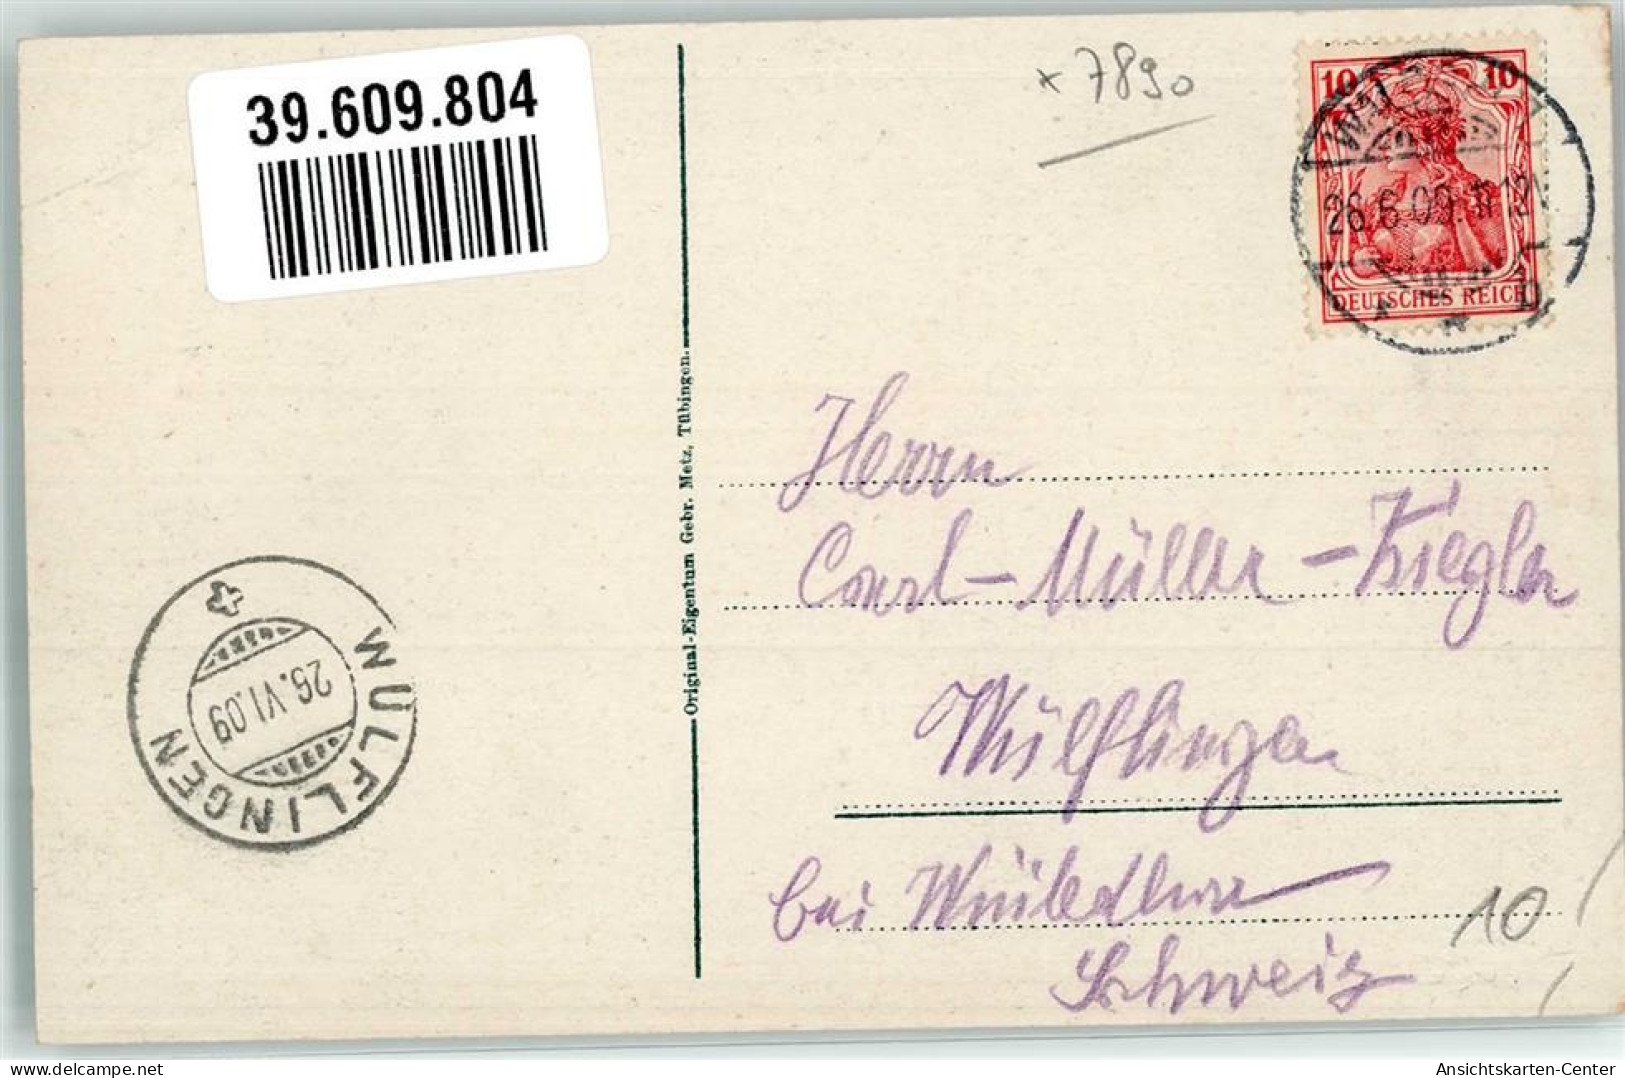 39.609.804
* 7890
10 10
26.6.09.
DEUTSCHES REICH
Original-Eigentum Gebr. Metz, Tübingen.
Herrn
Carl-Müller-Ziegler
Wülflingen
bei
Schweiz
10
WÜLFLINGEN
26.VI.09
delcampe.net
Ansichtskarten-Center